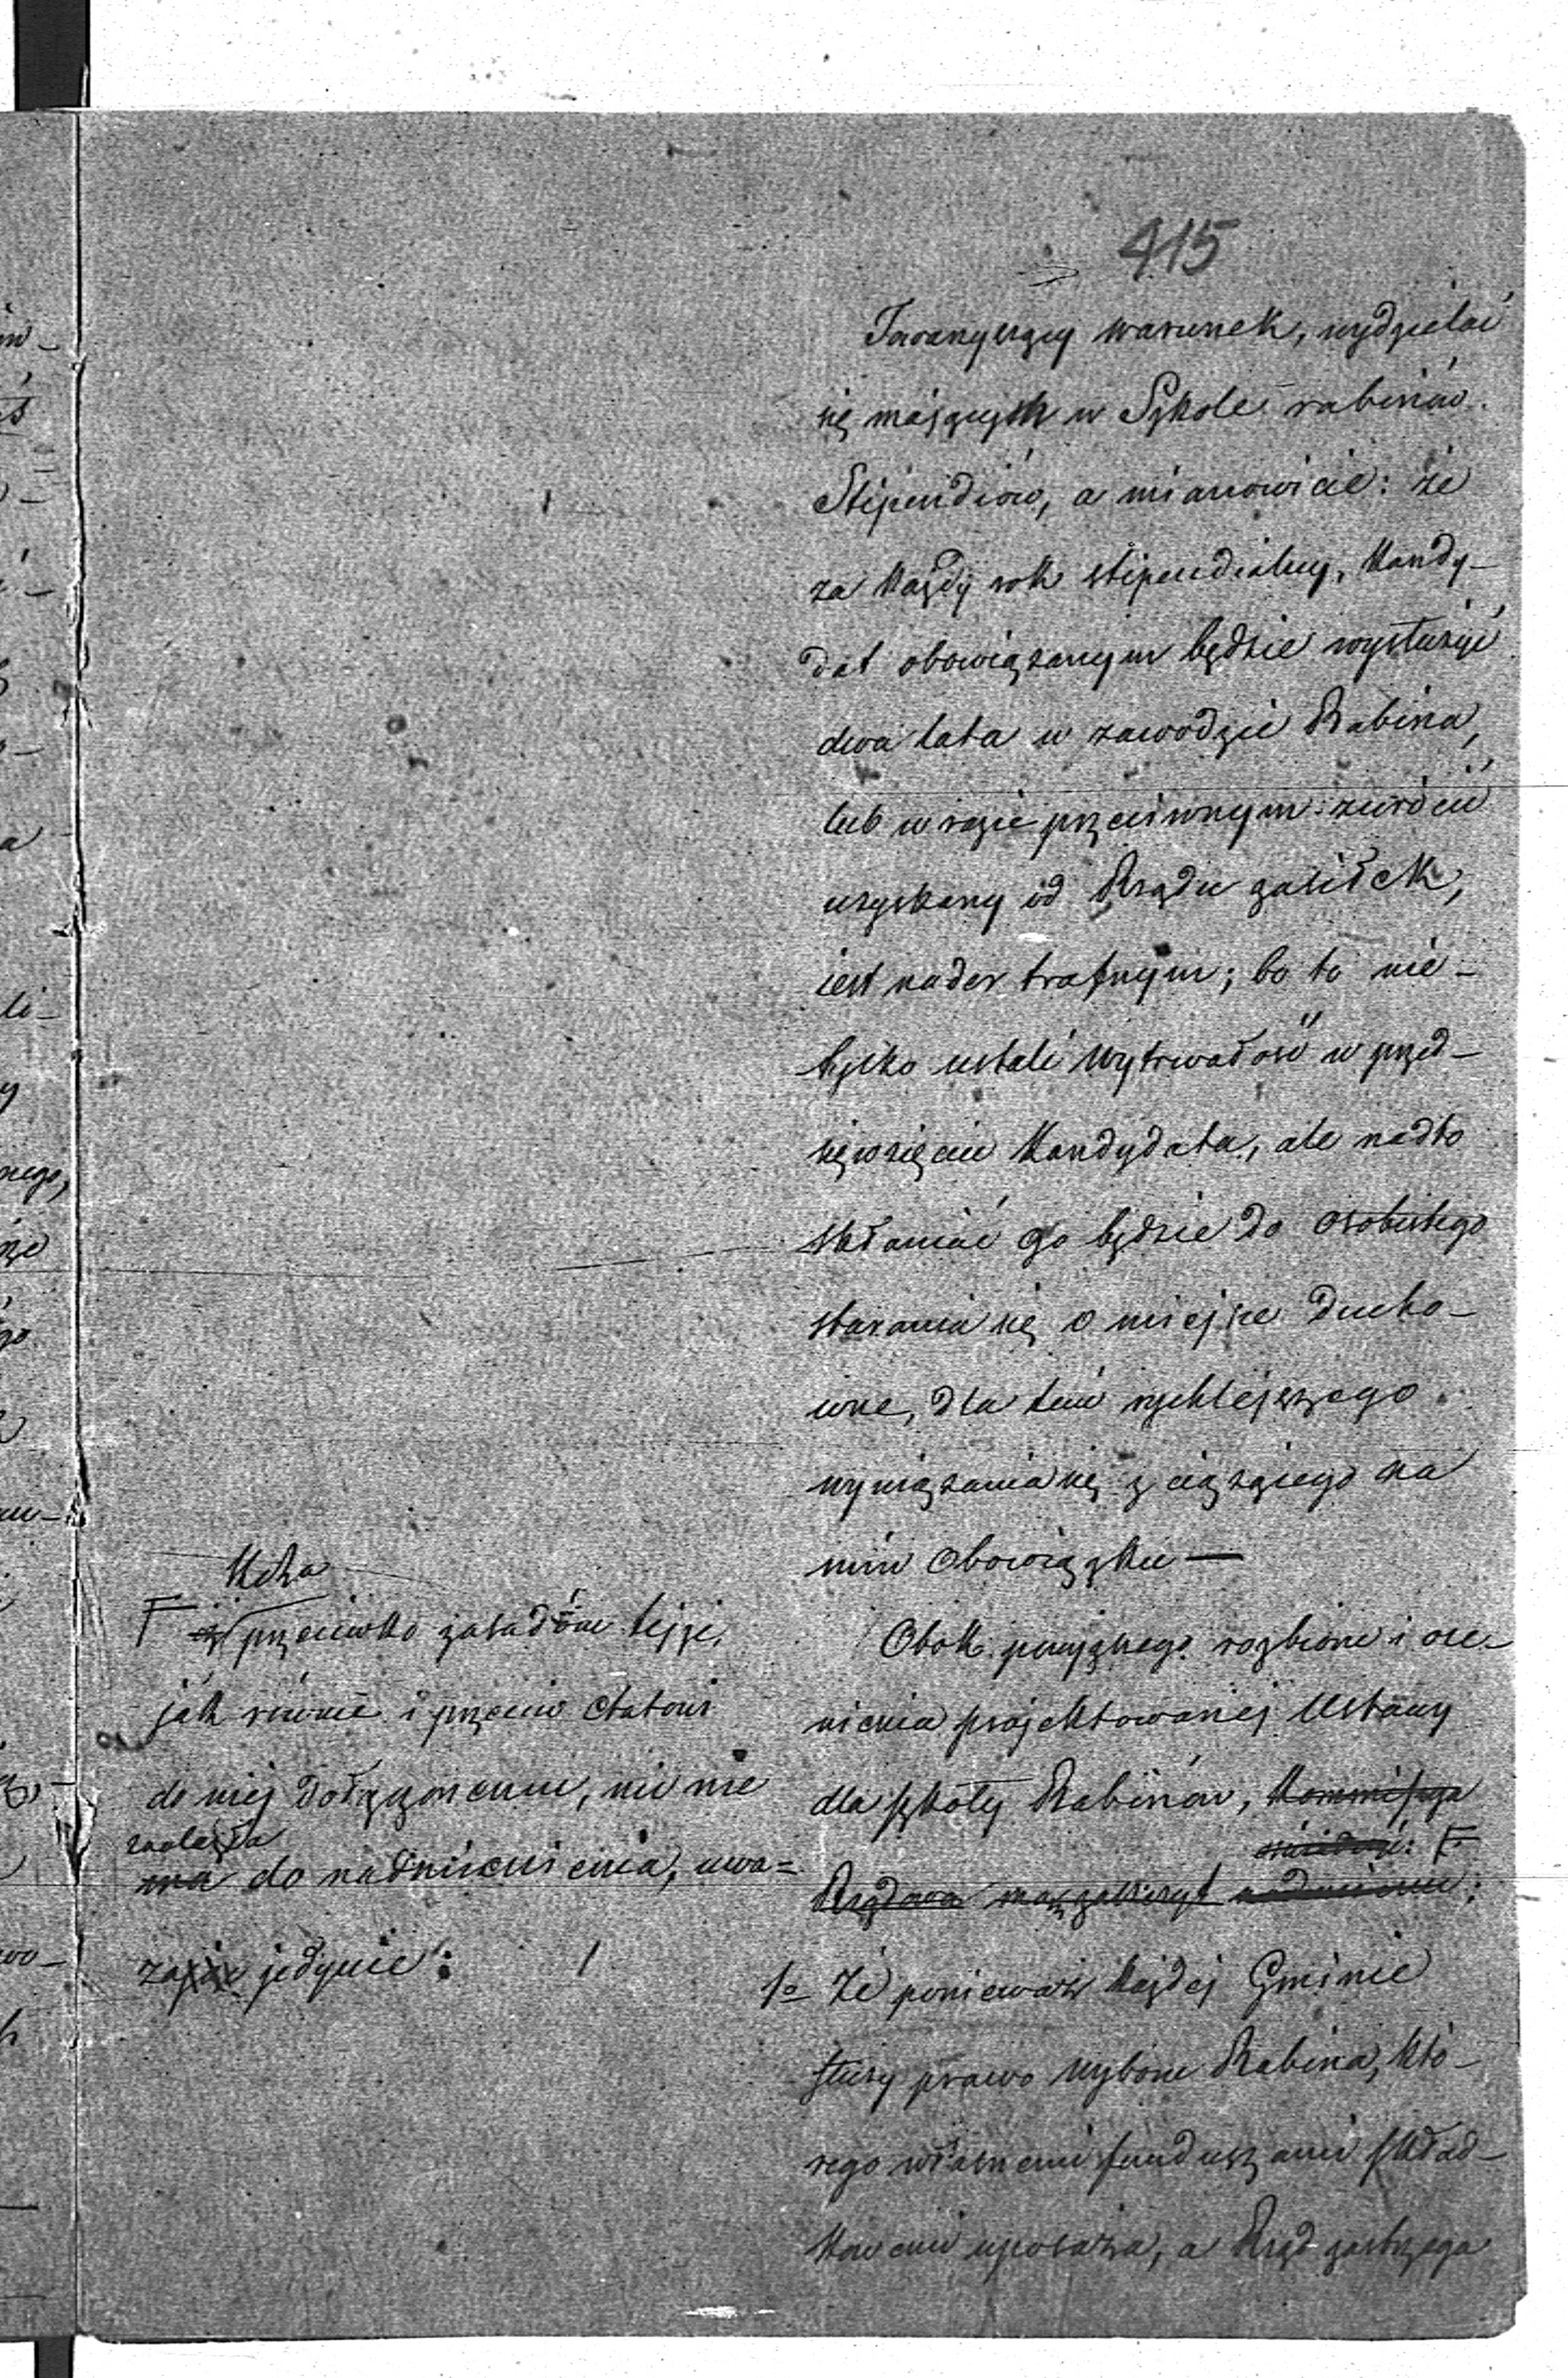 415
Towarzyszący warunek, wydzielać
się mających w Szkole rabinów
Stipendiów, a mianowicie: że
za każdy rok stipendialny, Kandy-
dat obowiązanym będzie wysłużyć
dwa lata w zawodzie Rabina,
lub w razie przeciwnym zwrócić
uzyskany od Rządu zasiłek,
iest nader trafnym; bo to nie-
tylko ustali wytrwałość w przed-
sięwzięciu Kandydata, ale nadto
skłaniać go będzie do osobistego
starania się o miejsce Ducho-
wne, dla tem rychlejszego
wywiązania się z ciążącego na
nim obowiązku —
Obok powyższego rozbioru i oce-
nienia projektowanej Ustawy
dla szkoły Rabinów, Kommissya
F
Rządowa ma zaszczyt nadmienić:
1o Że ponieważ każdej Gminie
służy prawo wyboru Rabina, któ-
rego własnemi funduszami skład-
kowemi uposaża, a Rząd zastrzega
F przeciwko zasadom tejże,
jak równie i przeciw etatowi
do niej dołączonemu, nic nie
znalazła
ma do nadmienienia, uwa=
jedynie: